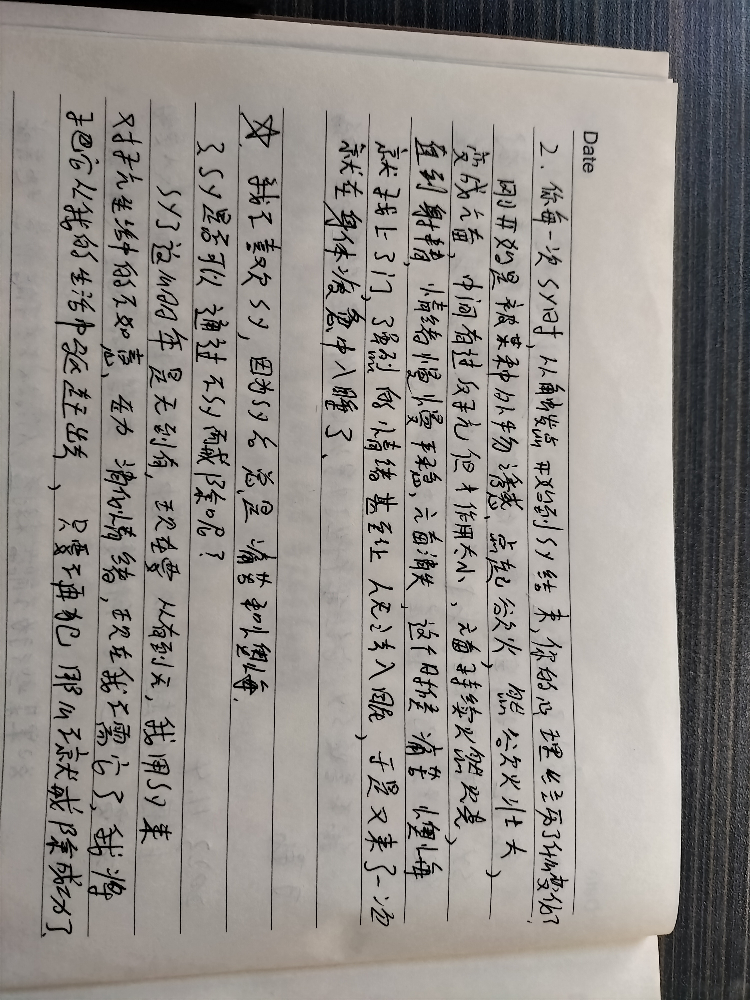 Date
2. 你每一次SY时,从触发点开始到SY结束,你的心理经历了什么变化?
刚开始是被某种外物诱惑,点起欲火,欲火壮大,
变成六畜,中间有过反抗,但作用太小,
直到射精,情绪慢慢平稳,六畜消失,这个时候痛苦懊悔
就找上了门,强烈的情绪甚至让人无法入眠,于是又来了一次
就在身体疲惫中入睡了.
☆ 我不喜欢SY,因为SY总是痛苦和懊悔.
SY是否可以通过不SY而戒除呢?
SY了这么多年是无到有,现在要从有到无,我用SY来
对抗生活中的不如意,压力,情绪,现在我不需它了,我将
把它从我的生活中驱赶出去,只要不再犯那么就戒除成功了.